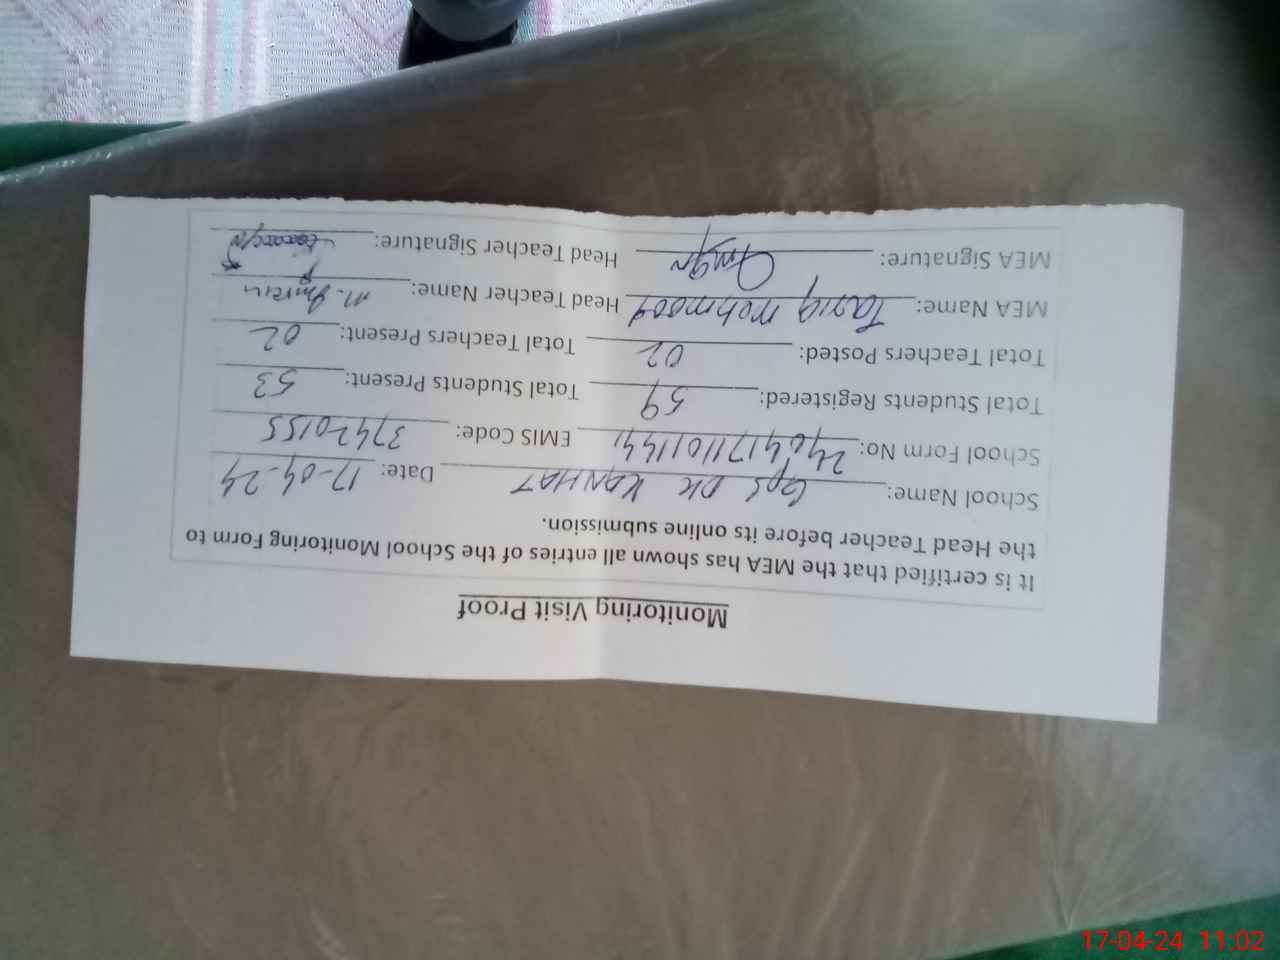 Monitoring Visit Proof
It is certified that the MEA has shown all entries of the School Monitoring Form to
the Head Teacher before its online submission.
School Name: GpS DK KANHAT Date: 17-04-24
School Form No: EMIS Code: 37420155
Total Students Registered: 59 Total Students Present: 53
Total Teachers Posted: 02 Total Teachers Present: 02
MEA Name: Tariq mehmood Head Teacher Name: M.
MEA Signature: Head Teacher Signature:
17-04-24 11:02